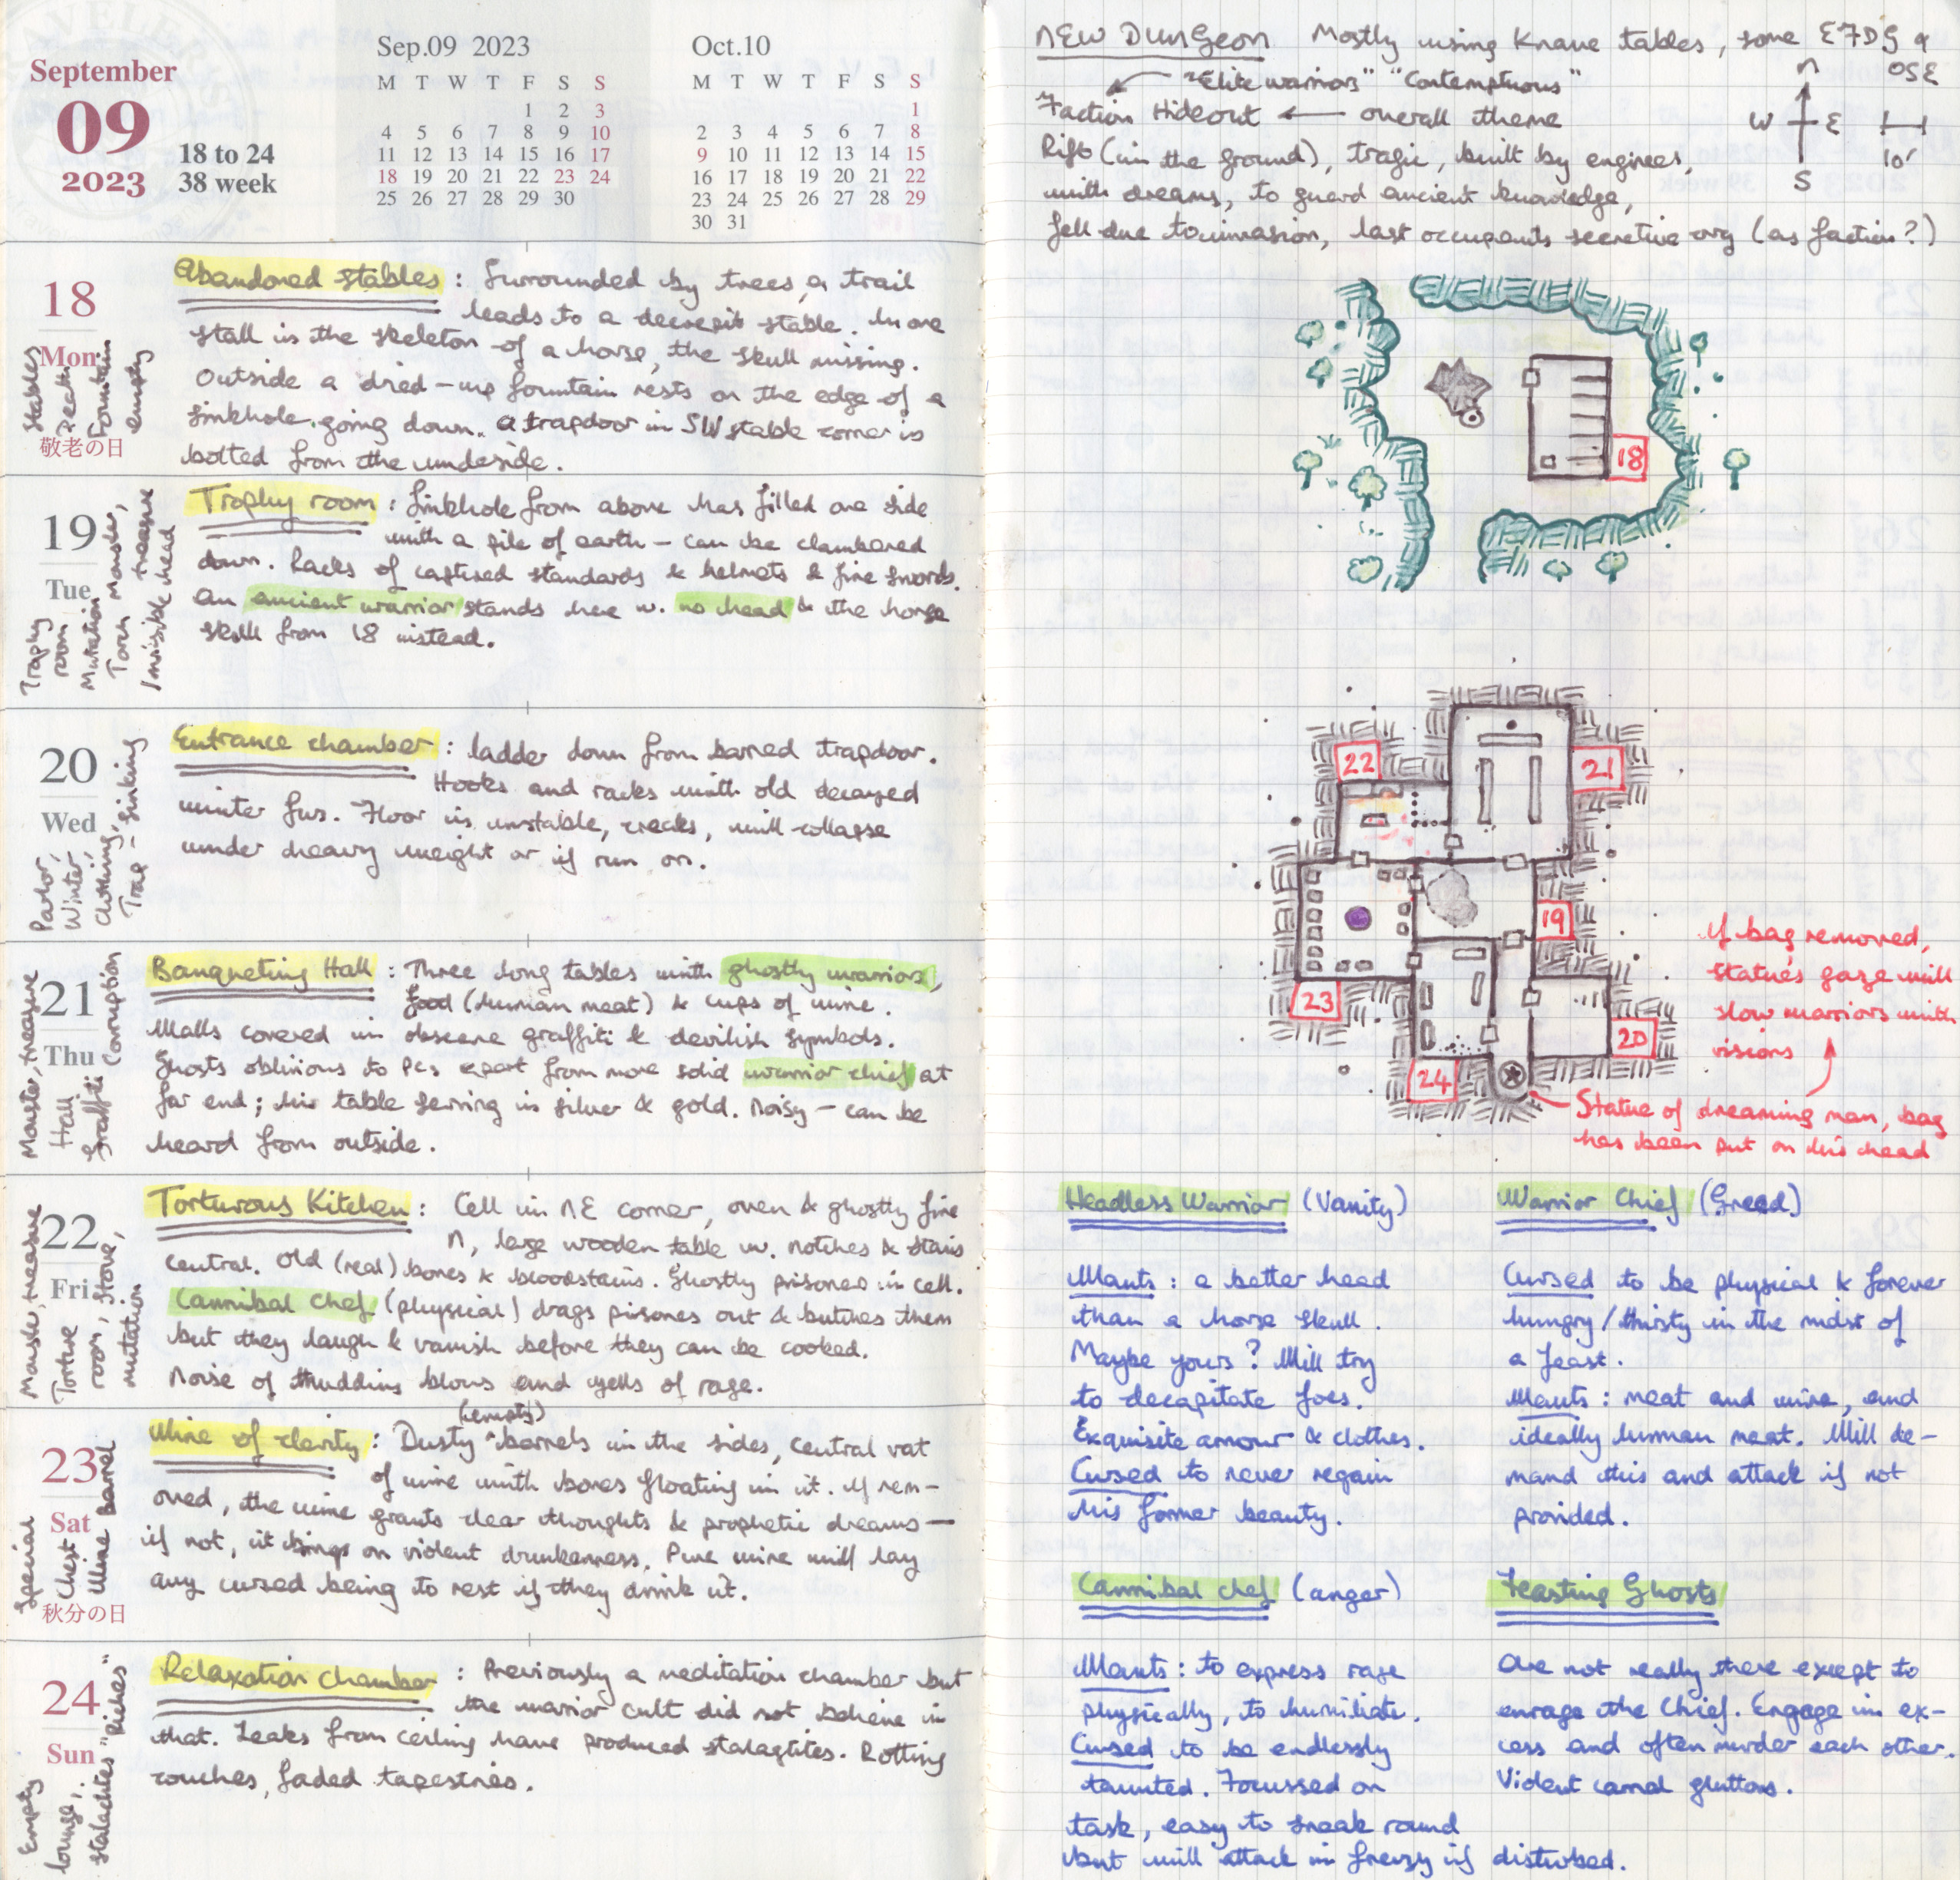 September
09
2023
18 to 24
38 week
Sep.09 2023
M T W T F S S
1 2 3
4 5 6 7 8 9 10
11 12 13 14 15 16 17
18 19 20 21 22 23 24
25 26 27 28 29 30
Oct.10
M T W T F S S
1
2 3 4 5 6 7 8
9 10 11 12 13 14 15
16 17 18 19 20 21 22
23 24 25 26 27 28 29
30 31
18
Mon
敬老の日
Stables
Death
Fountain
empty
Abandoned stables : Surrounded by trees, a trail
leads to a decrepit stable. In one
stall is the skeleton of a horse, the skull missing.
Outside a dried-up fountain rests on the edge of a
sinkhole going down. A trapdoor in SW stable corner is
bolted from the underside.
19
Tue
Trophy
room
Mutation
Torch Monster,
treasure
Invisible head
Trophy room : Sinkhole from above has filled one side
with a pile of earth – can be clambered
down. Racks of captured standards & helmets & fine swords.
An ancient warrior stands here w. no head & the horse
skull from 18 instead.
20
Wed
Parlor,
Winter
clothing,
Trap – sinking
Entrance chamber : ladder down from barred trapdoor.
Hooks and racks with old decayed
winter furs. Floor is unstable, cracks, will collapse
under heavy weight or if run on.
21
Thu
Monster, treasure
Hall
Graffiti
Corruption
Banqueting Hall : Three long tables with ghostly warriors,
food (human meat) & cups of wine.
Walls covered in obscene graffiti & devilish symbols.
Ghosts oblivious to PCs apart from more solid warrior chief at
far end; his table serving is silver & gold. Noisy – can be
heard from outside.
22
Fri
Monster, treasure
Torture
room, stove,
mutation
Torturous Kitchen : Cell in NE corner, oven & ghostly fire
N, large wooden table w. notches & stains
central. Old (real) bones & bloodstains. Ghostly prisoners in cell.
Cannibal Chef (physical) drags prisoners out & butches them
but they laugh & vanish before they can be cooked.
Noise of thudding blows and yells of rage.
23
Sat
秋分の日
Special
Chest
Wine Barrel
Wine of clarity : Dusty (empty) barrels in the sides, central vat
of wine with bones floating in it. If rem-
oved, the wine grants clear thoughts & prophetic dreams –
if not, it brings on violent drunkenness. Pure wine will lay
any cursed being to rest if they drink it.
24
Sun
Empty
lounge,
stalactites "Riches"
Relaxation chamber : Previously a meditation chamber but
the warrior cult did not believe in
that. Leaks from ceiling have produced stalagtites. Rotting
couches, faded tapestries.
NEW DUNGEON Mostly using Knave tables, some E7DS &
OSE
"Elite warriors" "Contemptuous"
Faction Hideout ← overall theme
Rift (in the ground), tragic, built by engineer,
with dreams, to guard ancient knowledge,
fell due to invasion, last occupants secretive org (as faction?)
N
W E
S
10'
18
22
21
19
23
20
24
If bag removed,
statue's gaze will
slow warriors with
visions
Statue of dreaming man, bag
has been put on his head
Headless Warrior (Vanity)
Wants : a better head
than a horse skull.
Maybe yours? Will try
to decapitate foes.
Exquisite armour & clothes.
Cursed to never regain
his former beauty.
Warrior Chief (Greed)
Cursed to be physical & forever
hungry/thirsty in the midst of
a feast.
Wants : meat and wine, and
ideally human meat. Will de-
mand this and attack if not
provided.
Cannibal chef (anger)
Wants : to express rage
physically, to humiliate.
Cursed to be endlessly
taunted. Focussed on
task, easy to sneak round
but will attack in frenzy if disturbed.
Feasting Ghosts
Are not really there except to
enrage the Chief. Engage in ex-
cess and often murder each other.
Violent carnal gluttons.